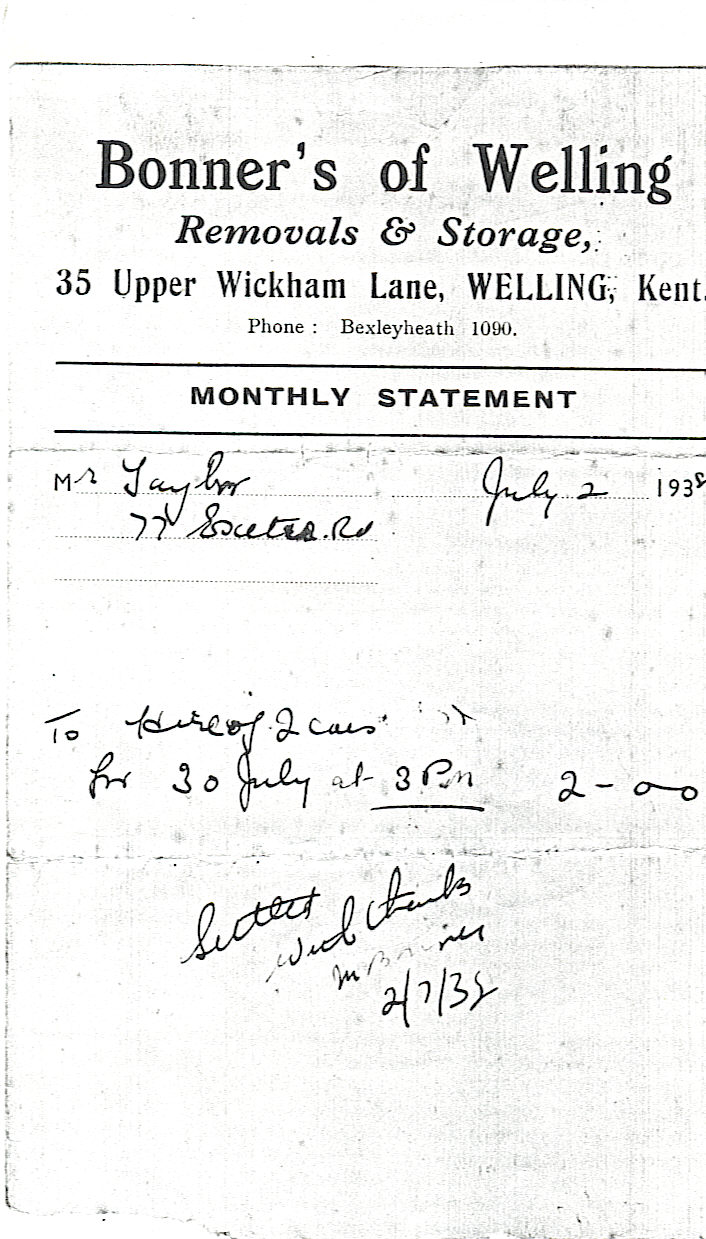 Bonner's of Welling
Removals & Storage,
35 Upper Wickham Lane, WELLING, Kent.
Phone : Bexleyheath 1090.
MONTHLY STATEMENT
Mr Taylor July 2 1938
77 Exeter Rd
To Hire of 2 cars
for 30 July at 3 Pm 2-0-0
Settled
with thanks
M Bonner
2/7/38